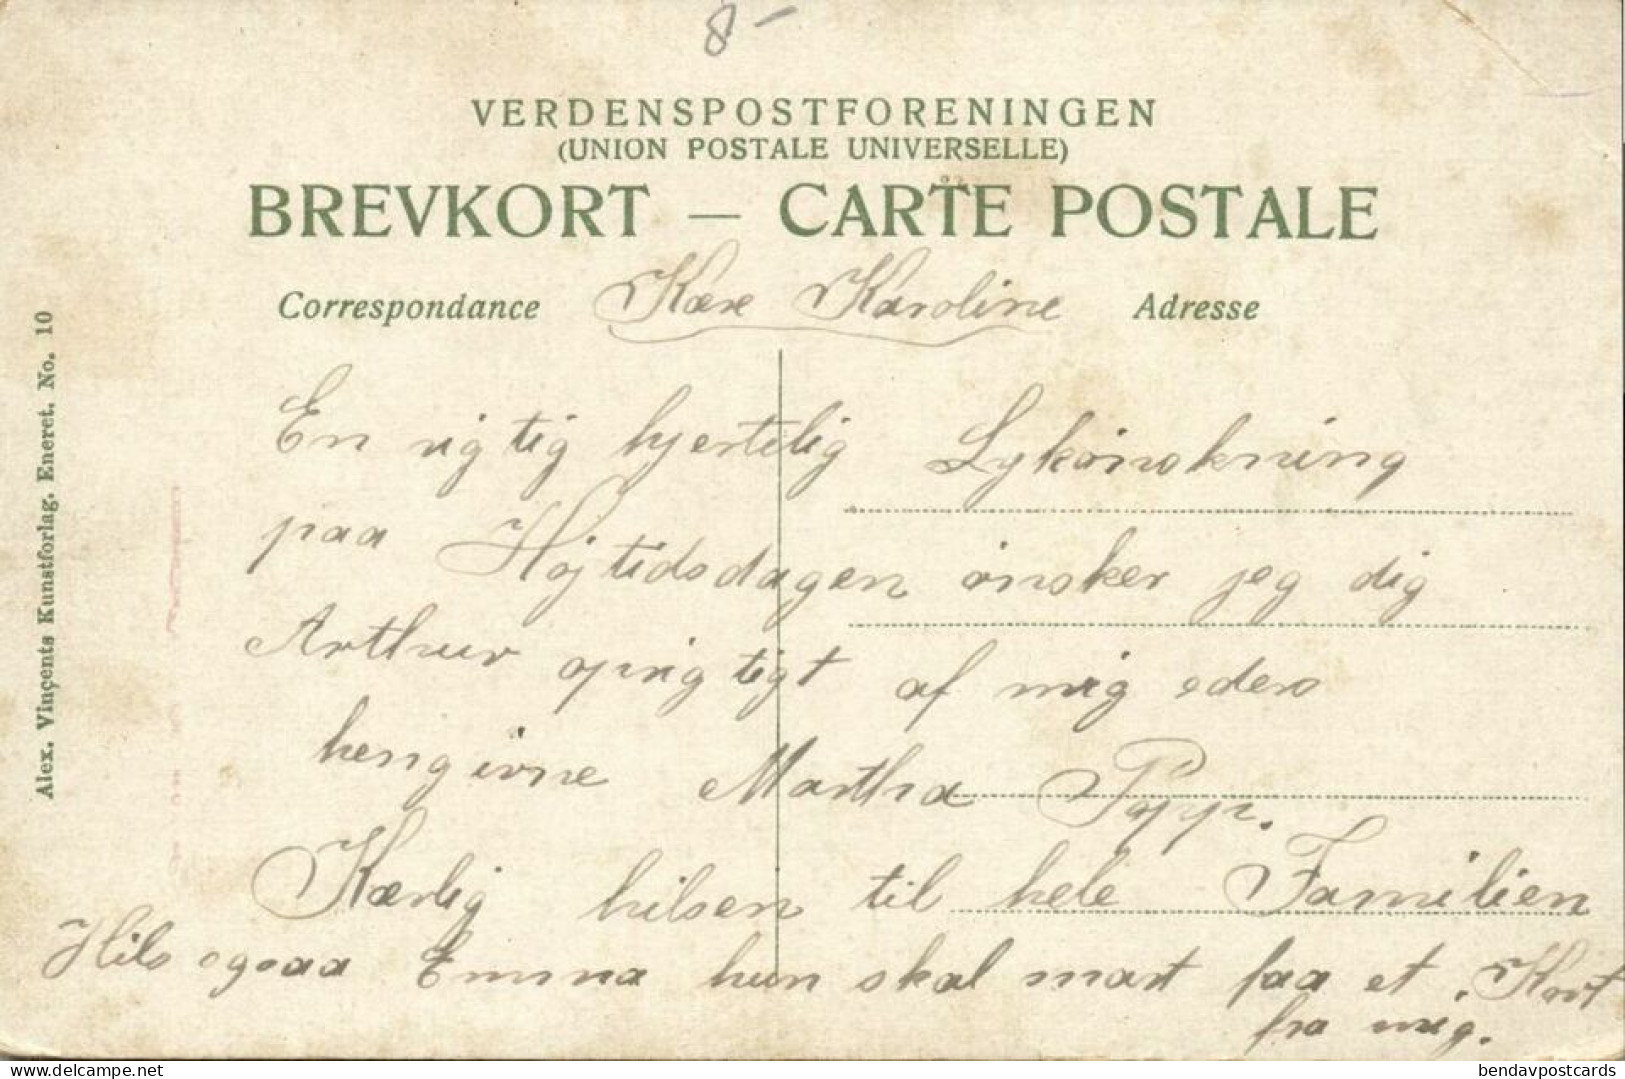 8-
VERDENSPOSTFORENINGEN
(UNION POSTALE UNIVERSELLE)
BREVKORT — CARTE POSTALE
Correspondance Kære Karoline Adresse
En rigtig hjertelig Lykønskning
paa Højtidsdagen ønsker jeg dig
Arthur oprigtigt af mig eders
hengivne Martha Popp.
Kærlig hilsen til hele Familien
Hils ogsaa Emma hun skal snart faa et Kort
fra mig.
Alex. Vinçents Kunstforlag. Eneret. No. 10
delcampe.net
bendavpostcards